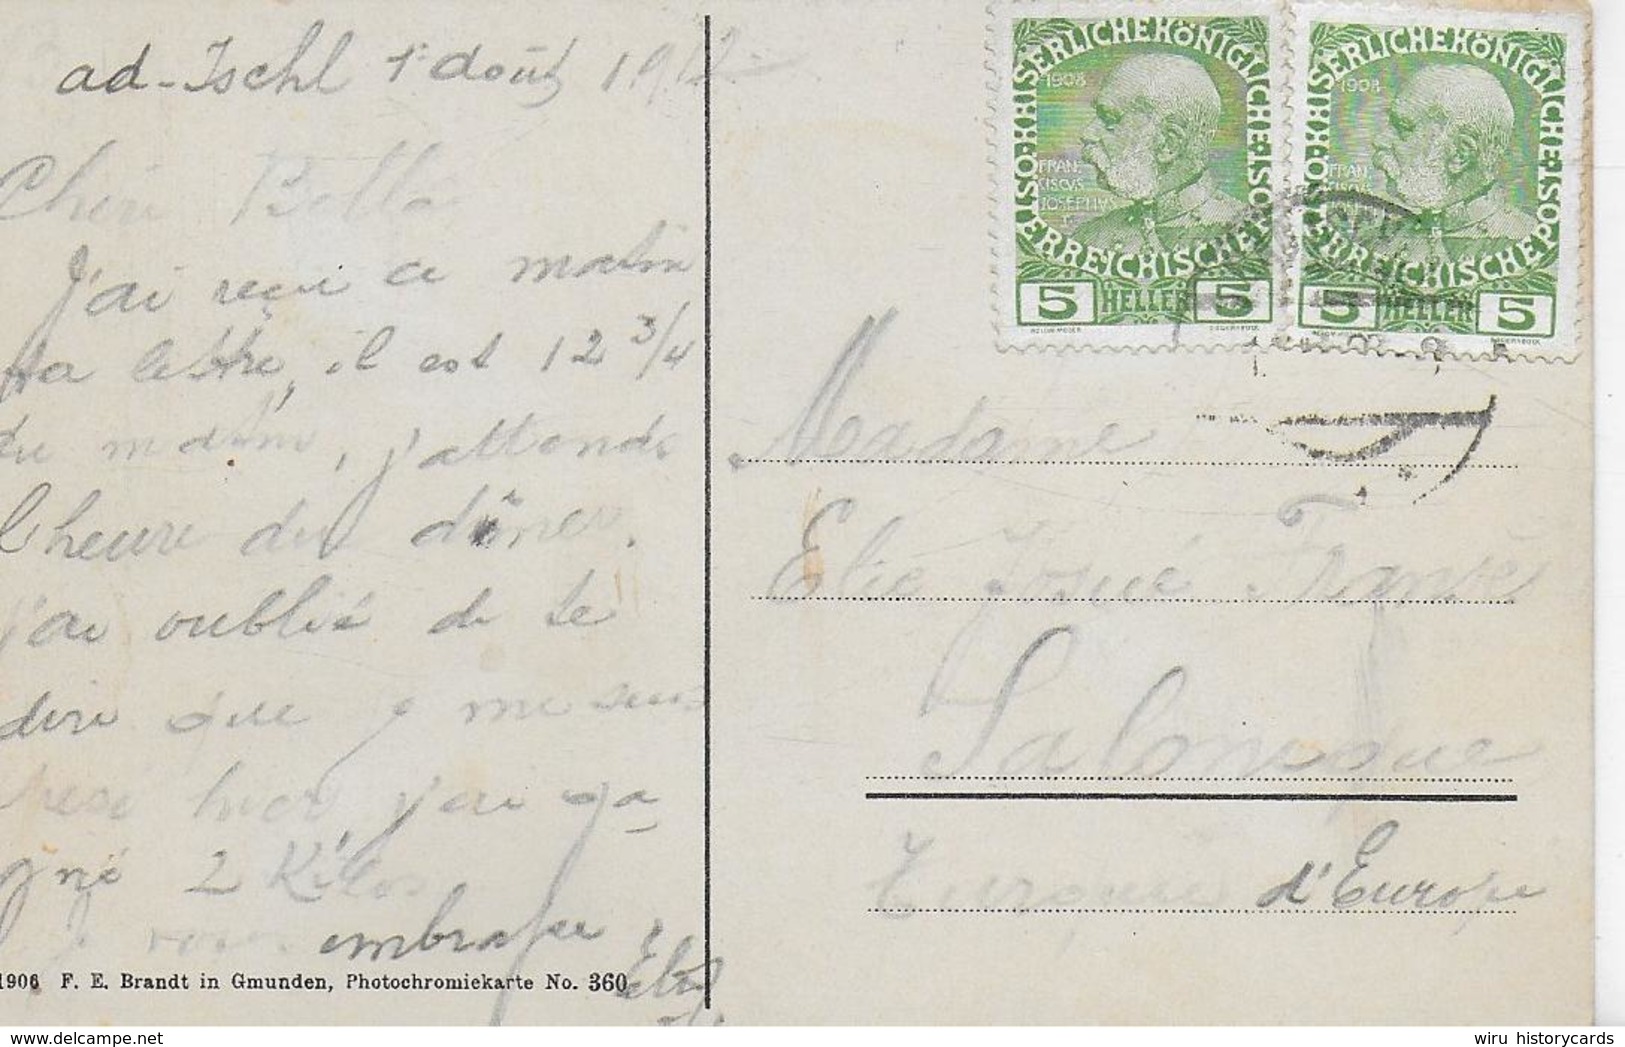 ad-Ischl 1 Août 1912
Chère Bella
J'ai reçu ce matin
ta lettre, il est 12 3/4
du matin, j'attends
l'heure du dîner.
j'ai oublié de te
dire que je me suis
pesé hier, j'ai ga-
gné 2 Kilos
Je vous embrasse
Elie
1906 F. E. Brandt in Gmunden, Photochromiekarte No. 360
KAISERLICHEKÖNIGLICHE
ÖSTERREICHISCHE POST
1908
FRAN
CISCVS
JOSEPHVS
I
5 HELLER 5
KOLOM·MOSER
KAISERLICHEKÖNIGLICHE
ÖSTERREICHISCHE POST
1908
FRAN
CISCVS
5 HELLER 5
Madame
Elie Josué
Salonique
Turquie d'Europe
wiru historycards